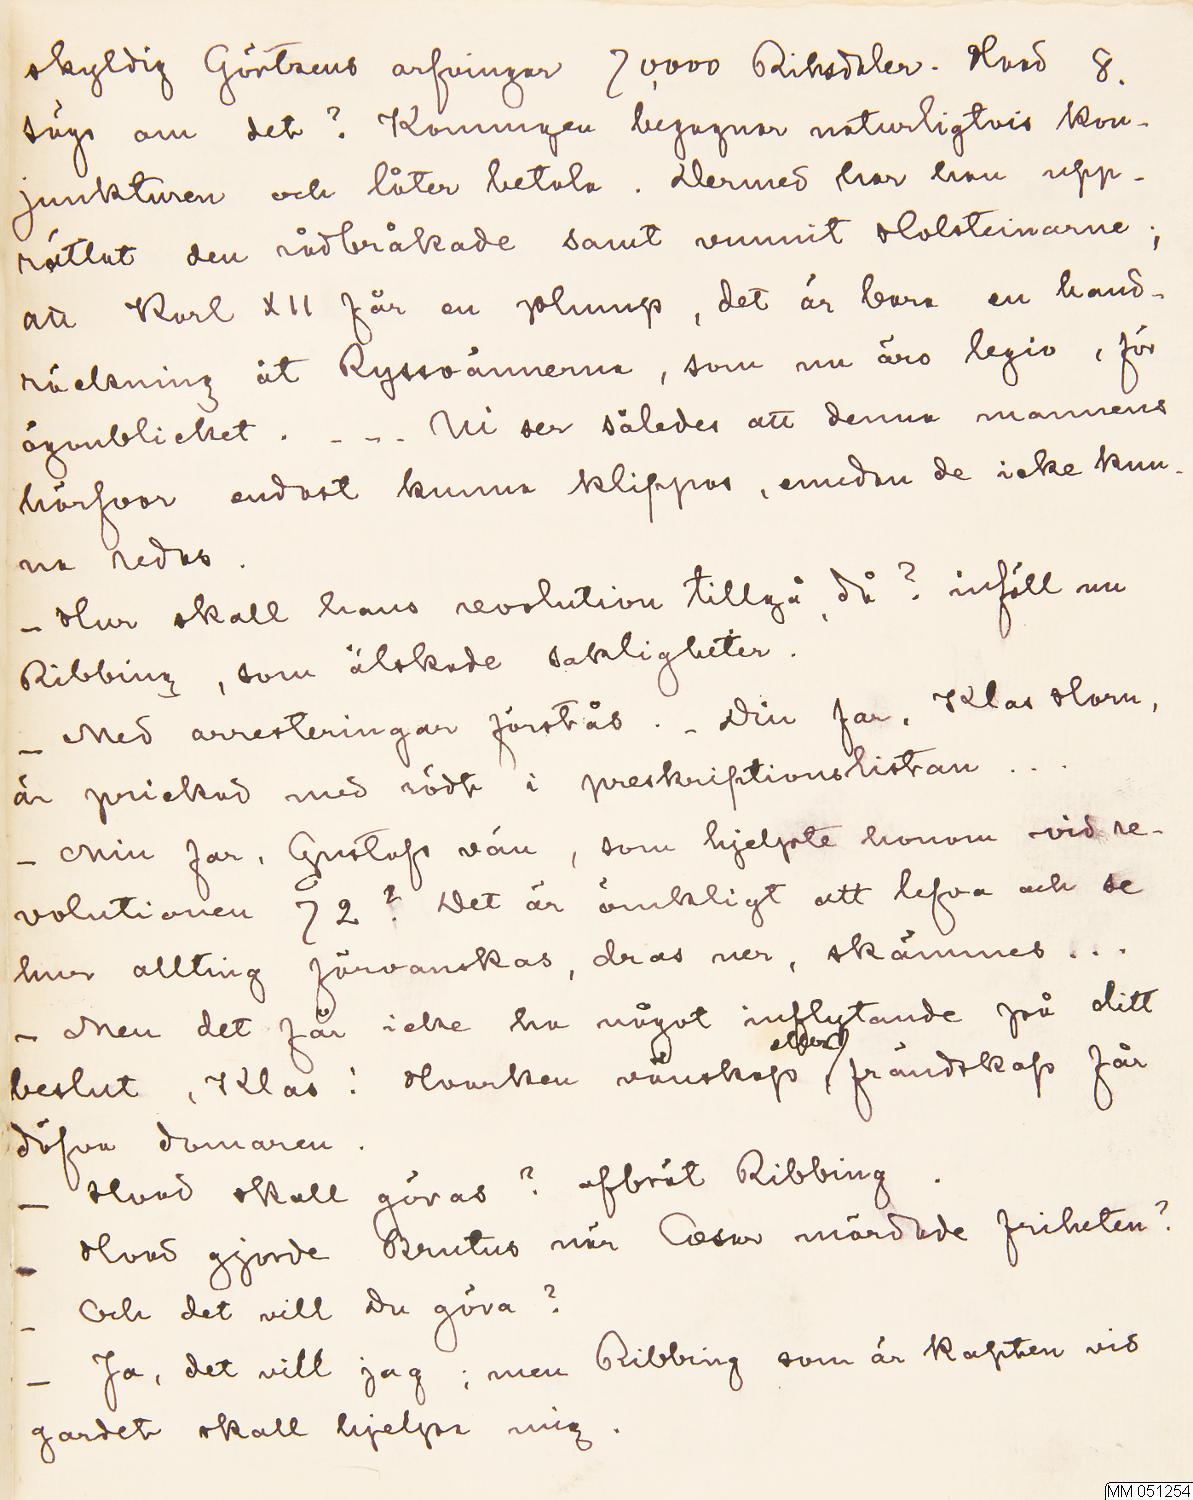 skyldig Görtzens arfvingar 70,000 Riksdaler. Hvad 8.
sägs om det? Konungen begagnar naturligtvis kon-
junkturen och låter betala. Dermed har han upp-
rättat den rådbråkade samt vunnit Holsteinarne;
att Karl XII får en plump, det är bara en hand-
räckning åt Ryssvännerna, som nu äro legio, för
ögonblicket. - - - Ni ser således att denna mannens
härfvor endast kunna klippas, emedan de icke kun-
na redas.
- Hur skall hans revolution tillgå, då? inföll nu
Ribbing, som älskade sakligheter.
- Med arresteringar förstås. - Din far, Klas Horn,
är prickad med rödt i preskriptionslistan ...
- Min far, Gustafs vän, som hjelpte honom vid re-
volutionen 72? Det är ömkligt att lefva och se
hur allting förvanskas, dras ner, skämmes ...
- Men det får icke ha något inflytande på ditt
beslut, Klas! Hvarken vänskap eller frändskap får
döfva domaren.
- Hvad skall göras? afbröt Ribbing.
- Hvad gjorde Brutus när Cæsar mördade friheten?
- Och det vill Du göra?
- Ja, det vill jag; men Ribbing som är kapten vid
gardet skall hjelpa mig.
MM 051254